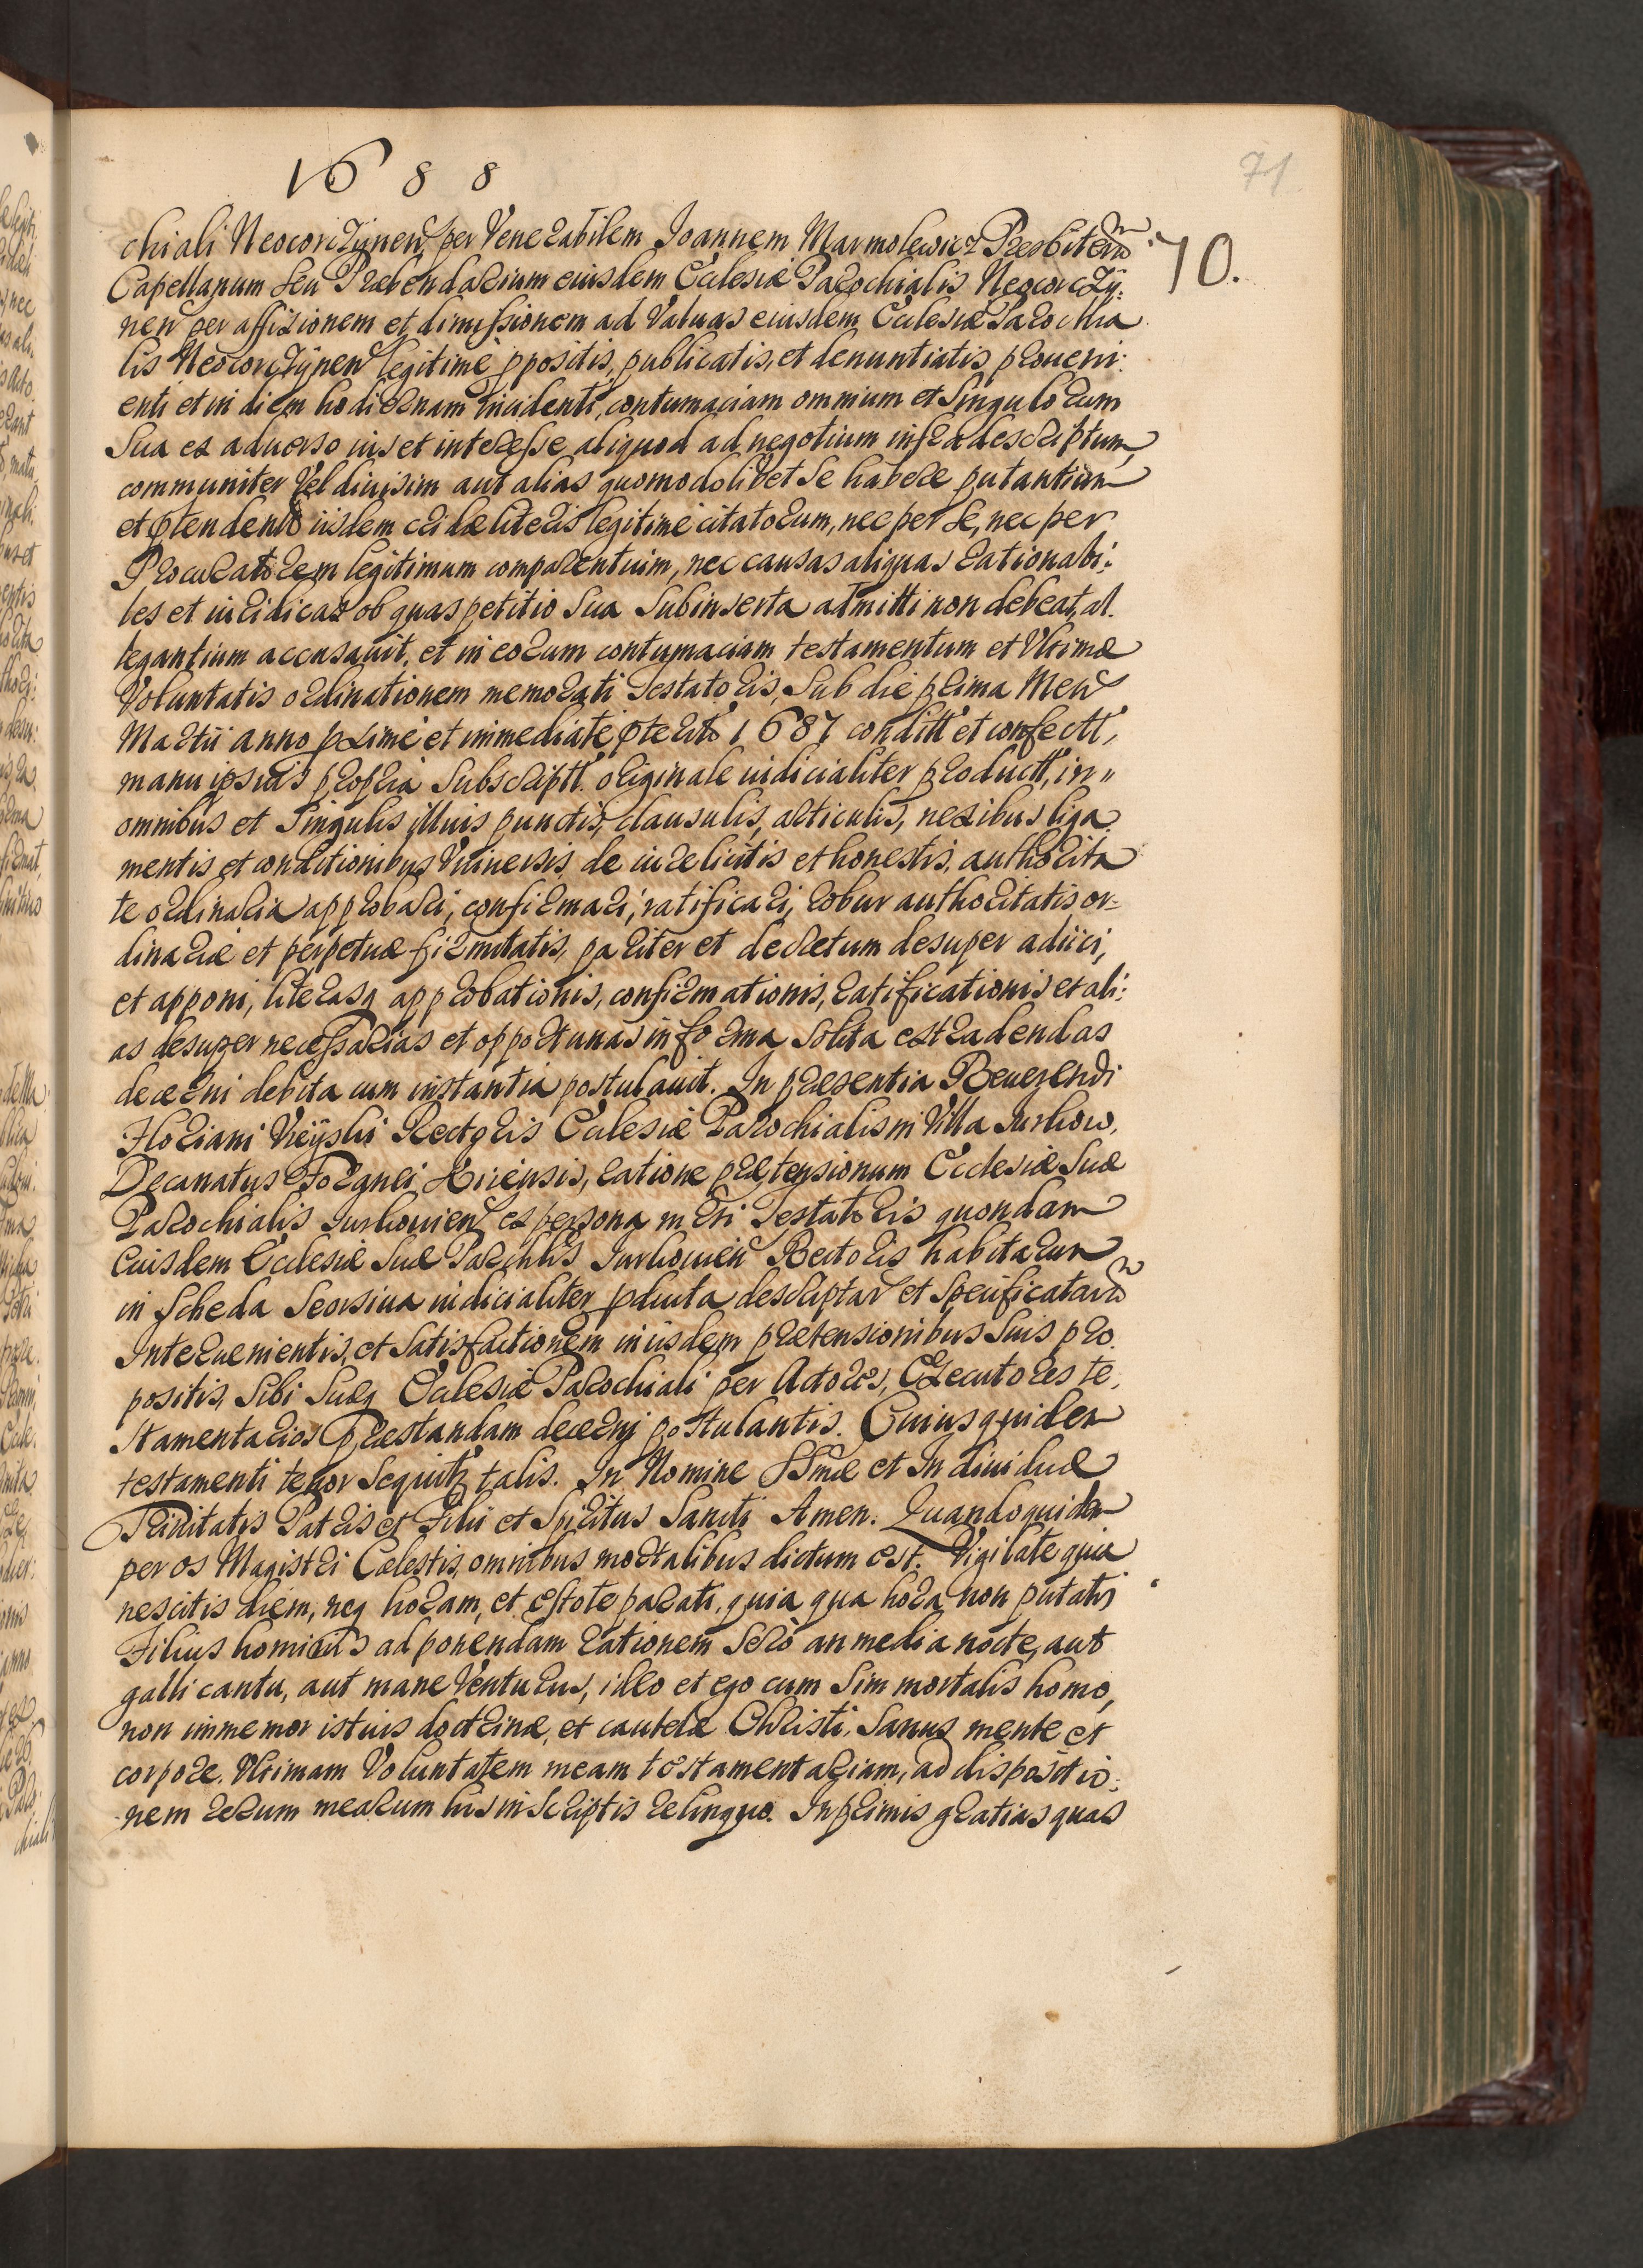 1688
71
70.
chiali Neocorczynen per Venerabilem Joannem Marmolewicz Presbiterum
Capellanum seu Præbendarium eiusdem Ecclesiæ Parochialis Neocorczy:
nen per affixionem et dimissionem ad Valuas eiusdem Ecclesiæ Parochia
lis Neocorczynen legitimè ppositis, publicatis, et denuntiatis proueni:
enti et in diem hodiernam incidenti, contumaciam omnium et Singulorum
Sua ex aduerso ius et interesse aliquod ad negotium infradescriptum,
communiter Vel diuisim aut alias quomodolibet Se habere putantium
et ptendentiũ iisdem cridæ literis legitimè citatorum, nec per Se, nec per
Procuratorem legitimum comparentium, nec causas aliquas rationabi:
les et iuridicas ob quas petitio Sua Subinserta admitti non debeat, al
legantium accusauit, et in eorum contumaciam testamentum et Vltimæ
Voluntatis ordinationem memorati Testatoris, Sub die prima Men
Martii anno pximè et immediatè pterito 1687 conditt et confectt,
manu ipsius propria Subscriptt. originale iudicialiter productt, in"
omnibus et Singulis illius punctis, clausulis, articulis, nexibus liga
mentis et conditionibus Vniuersis de iure licitis et honestis, authorita
te ordinaria approbari, confirmari, ratificari, robur authoritatis or=
dinariæ et perpetuæ firmitatis, pariter et decretum desuper adiici,
et apponi, literasq approbationis, confirmationis, ratificationis et ali:
as desuper necessarias et opportunas in forma Solita extradendas
decerni debita cum instantia postulauit. In præsentia Reuerendi
Floriani Vieyski Rectoris Ecclesiæ Parochialis in Villa Jurkow,
Decanatus For gnei Xiiensis, ratione prætensionum Ecclesiæ Suæ
Parochialis Jurkouien ex persona mdri Testatoris quondam
Eiusdem Ecclesiæ Suæ Parchlis Jurkouien Rectoris habitarum
in Scheda Seorsiua iudicialiter pducta descriptar et Specificatarum
Interuenientis, et Satisfactionem in iisdem prætensionibus Suis pro
positis, Sibi Suæq Ecclesiæ Parochiali per Actores, Executores te
stamentarios præstandam decerni postulantis. Cuius quidem
testamenti tenor Sequitr talis. In Nomine SSmæ et Indiuiduæ
Trinitatis Patris et Filii et Spiritus Sancti Amen. Quandoquidem
per os Magistri Cœlestis, omnibus mortalibus dictum est. Vigilate quia
nescitis diem, neq horam, et estote parati, quia qua hora non putatis
Filius hominis ad ponendam rationem Serò an media nocte, aut
galli cantu, aut mane Venturus, ideo et ego cum Sim mortalis homo,
non immemor istius doctrinæ, et cautelæ Christi. Sanus mente et
corpore. Vltimam Voluntatem meam testamentariam, ad dispositio:
nem rerum mearum his in Scriptis relinquo. Inprimis gratias quas